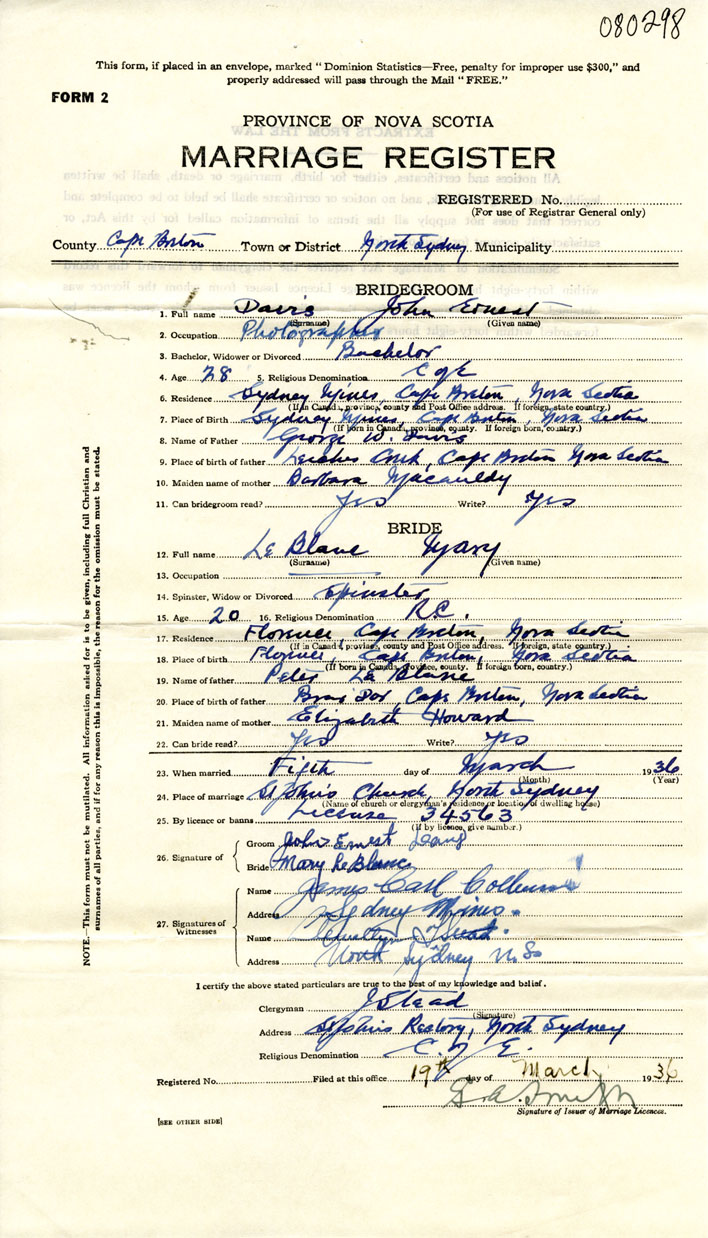 080298
This form, if placed in an envelope, marked "Dominion Statistics—Free, penalty for improper use $300," and
properly addressed will pass through the Mail "FREE."
FORM 2
PROVINCE OF NOVA SCOTIA
MARRIAGE REGISTER
REGISTERED No.
(For use of Registrar General only)
County Cape Breton Town or District North Sydney Municipality
BRIDEGROOM
1. Full name Davis John Ernest
(Surname) (Given name)
2. Occupation Photographer
3. Bachelor, Widower or Divorced Bachelor
4. Age 28 5. Religious Denomination C of E
6. Residence Sydney Mines, Cape Breton, Nova Scotia
(If in Canada, province, county and Post Office address. If foreign, state country.)
7. Place of Birth Sydney Mines, Cape Breton, Nova Scotia
(If born in Canada, province, county. If foreign born, country.)
8. Name of Father George W. Davis
9. Place of birth of father Leiches Creek, Cape Breton Nova Scotia
10. Maiden name of mother Barbara
11. Can bridegroom read? Yes Write? Yes
BRIDE
12. Full name Le Blanc Mary
(Surname) (Given name)
13. Occupation
14. Spinster, Widow or Divorced Spinster
15. Age 20 16. Religious Denomination R.C.
17. Residence Florence, Cape Breton, Nova Scotia
(If in Canada, province, county and Post Office address. If foreign, state country.)
18. Place of birth Florence, Cape Breton, Nova Scotia
(If born in Canada, province, county. If foreign born, country.)
19. Name of father Peter Le Blanc
20. Place of birth of father Bras Dor, Cape Breton, Nova Scotia
21. Maiden name of mother Elizabeth Howard
22. Can bride read? Yes Write? Yes
23. When married Fifth day of March 1936
(Month) (Year)
24. Place of marriage St John's Church, North Sydney
(Name of church or clergyman's residence or location of dwelling house)
25. By licence or banns License 34563
(If by licence, give number.)
26. Signature of
Groom John Ernest Davis
Bride Mary Le Blanc
27. Signatures of Witnesses
Name James Carl
Address Sydney Mines.
Name Stead.
Address North Sydney N.S.
I certify the above stated particulars are true to the best of my knowledge and belief.
Clergyman J Stead
(Signature)
Address St John's Rectory, North Sydney
Religious Denomination C. of E.
Registered No. Filed at this office 19th day of March 1936
Smith
Signature of Issuer of Marriage Licences.
[SEE OTHER SIDE]
NOTE.—This form must not be mutilated. All information asked for is to be given, including full Christian and
surnames of all parties, and if for any reason this is impossible, the reason for the omission must be stated.